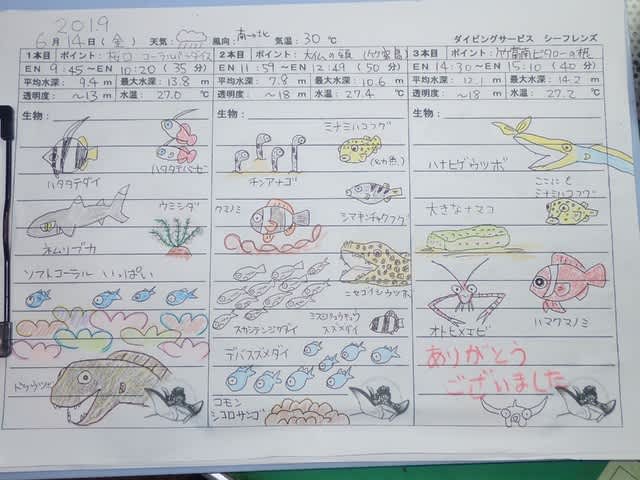 2019
6月14日(金) 天気: 風向: 南→北 気温: 30℃ ダイビングサービス シーフレンズ
1本目 ポイント: 桜口 コーラルパラダイス
EN 9:45～EN 10:20 (35分)
平均水深: 9.4m 最大水深: 13.8m
透明度: ～13m 水温: 27.0℃
生物:
ハタタテダイ
ハタタテハゼ
ウミシダ
ネムリブカ
ソフトコーラル いっぱい
ドクウツボ
2本目 ポイント: 大仏の頭
EN 11:59～EN 12:49 (50分)
平均水深: 7.8m 最大水深: 10.6m
透明度: ～18m 水温: 27.4℃
生物:
ミナミハコフグ
(幼魚)
チンアナゴ
クマノミ
シマキンチャクフグ
ニセゴイシウツボ
スカシテンジクダイ
ミスジリュウキュウ
スズメダイ
デバスズメダイ
コモン
シコロサンゴ
3本目 ポイント: 竹富南ピタローの根
EN 14:30～EN 15:10 (40分)
平均水深: 12.1m 最大水深: 14.2m
透明度: ～18m 水温: 27.2℃
生物:
ハナヒゲウツボ
ここにも
ミナミハコフグ
大きなナマコ
オトヒメエビ
ハマクマノミ
ありがとう
ございました